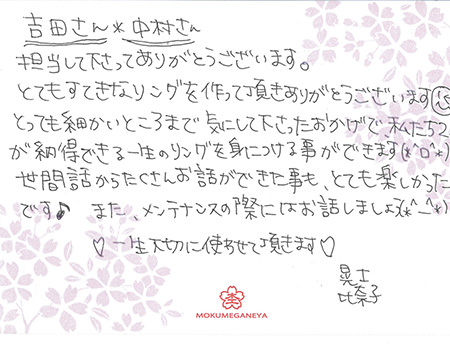 吉田さん＊中村さん
担当して下さってありがとうございます。
とてもすてきなリングを作って頂きありがとうございます
とっても細かいところまで気にして下さったおかげで、私たち2人
が納得できる一生のリングを身につける事ができます(*^o^*)
世間話からたくさんお話ができた事も、とても楽しかった
です♪ また、メンテナンスの際にはお話しましょう(*^_^*)
♡一生大切に使わせて頂きます♡
晃士
比奈子
MOKUMEGANEYA